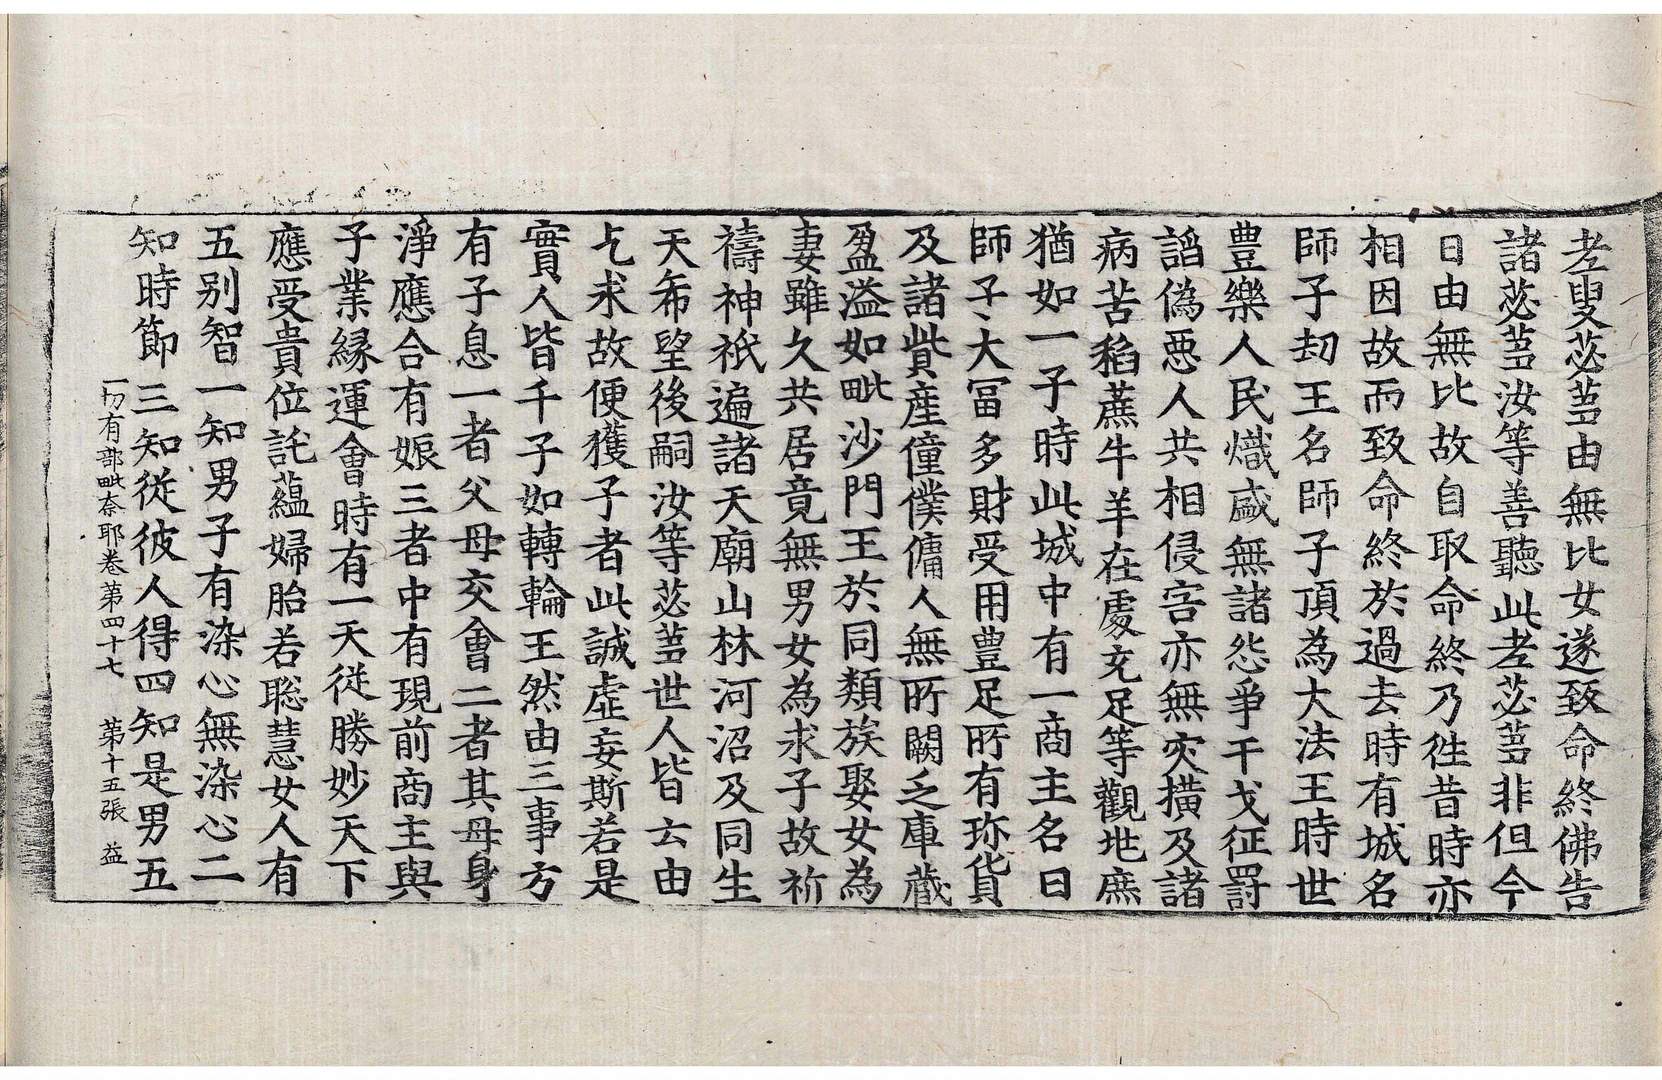 老叟苾蒭由無比女遂致命終佛告
諸苾蒭汝等善聽此老苾蒭非但今
日由無比故自取命終乃徃昔時亦
相因故而致命終於過去時有城名
師子刧王名師子頂為大法王時世
豊樂人民熾盛無諸怨爭干戈征罸
謟偽惡人共相侵害亦無灾撗及諸
病苦稻蔗牛羊在處充足等觀地庶
猶如一子時此城中有一商主名曰
師子大冨多財受用豊足所有珎貨
及諸貲產僮僕傭人無所闕乏庫藏
盈溢如毗沙門王於同類族娶女為
妻雖久共居竟無男女為求子故祈
禱神祇遍諸天廟山林河沼及同生
天希望後嗣汝等苾蒭世人皆云由
乞求故便獲子者此誠虛妄斯若是
實人皆千子如轉輪王然由三事方
有子息一者父母交會二者其母身
淨應合有娠三者中有現前商主與
子業緣運會時有一天從勝妙天下
應受貴位託蘊婦胎若聡慧女人有
五別智一知男子有染心無染心二
知時節三知從彼人得四知是男五
一切有部毗奈耶卷第四十七　第十五張　益